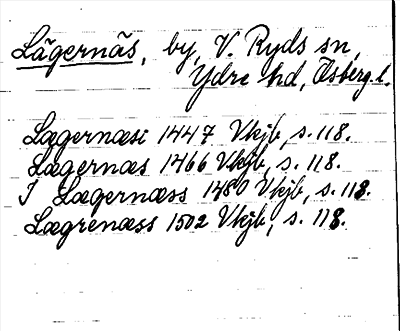 Lägernäs, by, V. Ryds sn,
Ydre hd, Östberg. l.
Lægernæsi 1447 Vkjb, s. 118.
Lægernæs 1466 Vkjb, s. 118.
I Lægernæss 1480 Vkjb, s. 118.
Lægrenæss 1502 Vkjb, s. 118.